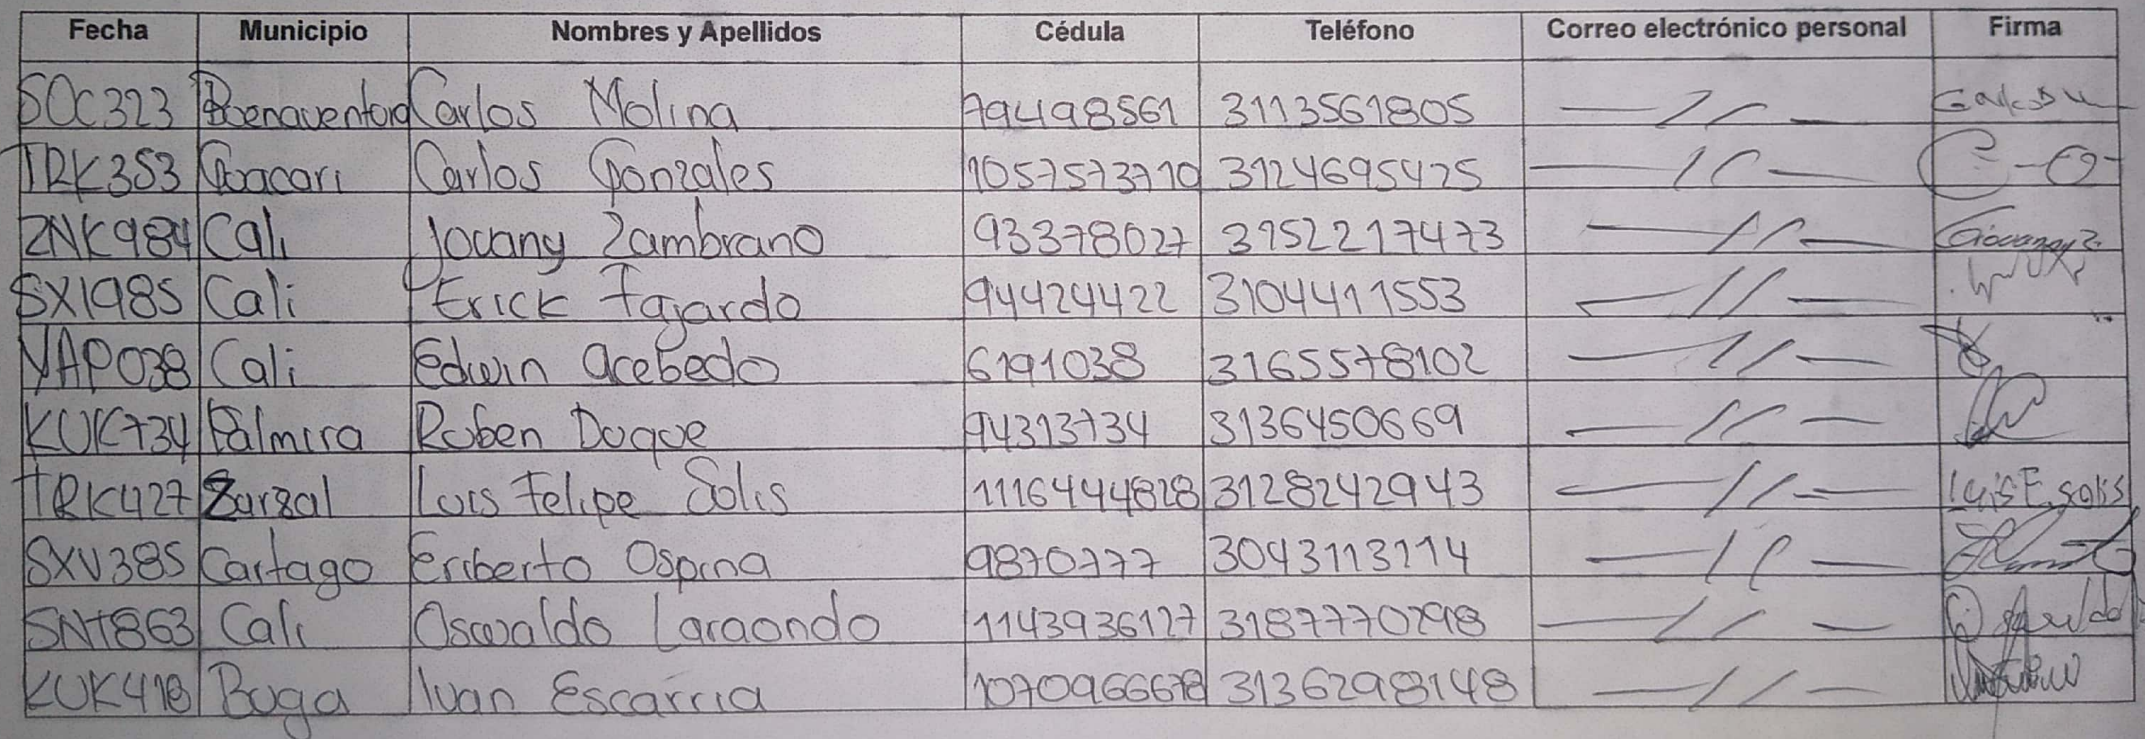 Fecha Municipio Nombres y Apellidos Cédula Teléfono Correo electrónico personal Firma
SOC323 Boenaventora Carlos Molina 79498561 3113561805
TRK353 Goacari Carlos Gonzales 1057573710 3124695475
ZNK984 Cali Jovany Zambrano 93378027 3152217473 Giovanny Z.
SXI985 Cali Erick Fajardo 94424422 3104411553
VAP038 Cali Edwin acebedo 6191038 3165578102
KUK734 Palmira Roben Doqoe 94313734 3136450669
TRK427 Zarzal Luis Felipe Solis 1116444828 3128242943 luis F solis
SXV385 Cartago Eriberto Ospina 9870777 3043113114
SNT863 Cali Oswaldo Laraondo 1143936127 3187770798
KUK418 Buga Ivan Escarria 1070966678 3136298148